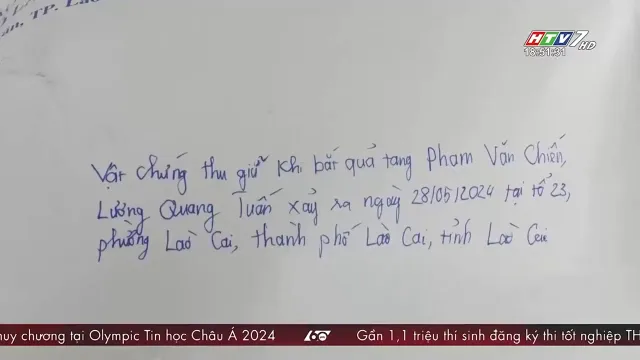 HTV7 HD
18:51:31
Vật chứng thu giữ khi bắt quả tang Phạm Văn Chiến,
Lương Quang Tuấn xảy ra ngày 28/05/2024 tại tổ 23,
phường Lào Cai, thành phố Lào Cai, tỉnh Lào Cai
huy chương tại Olympic Tin học Châu Á 2024 60 Gần 1,1 triệu thí sinh đăng ký thi tốt nghiệp TH